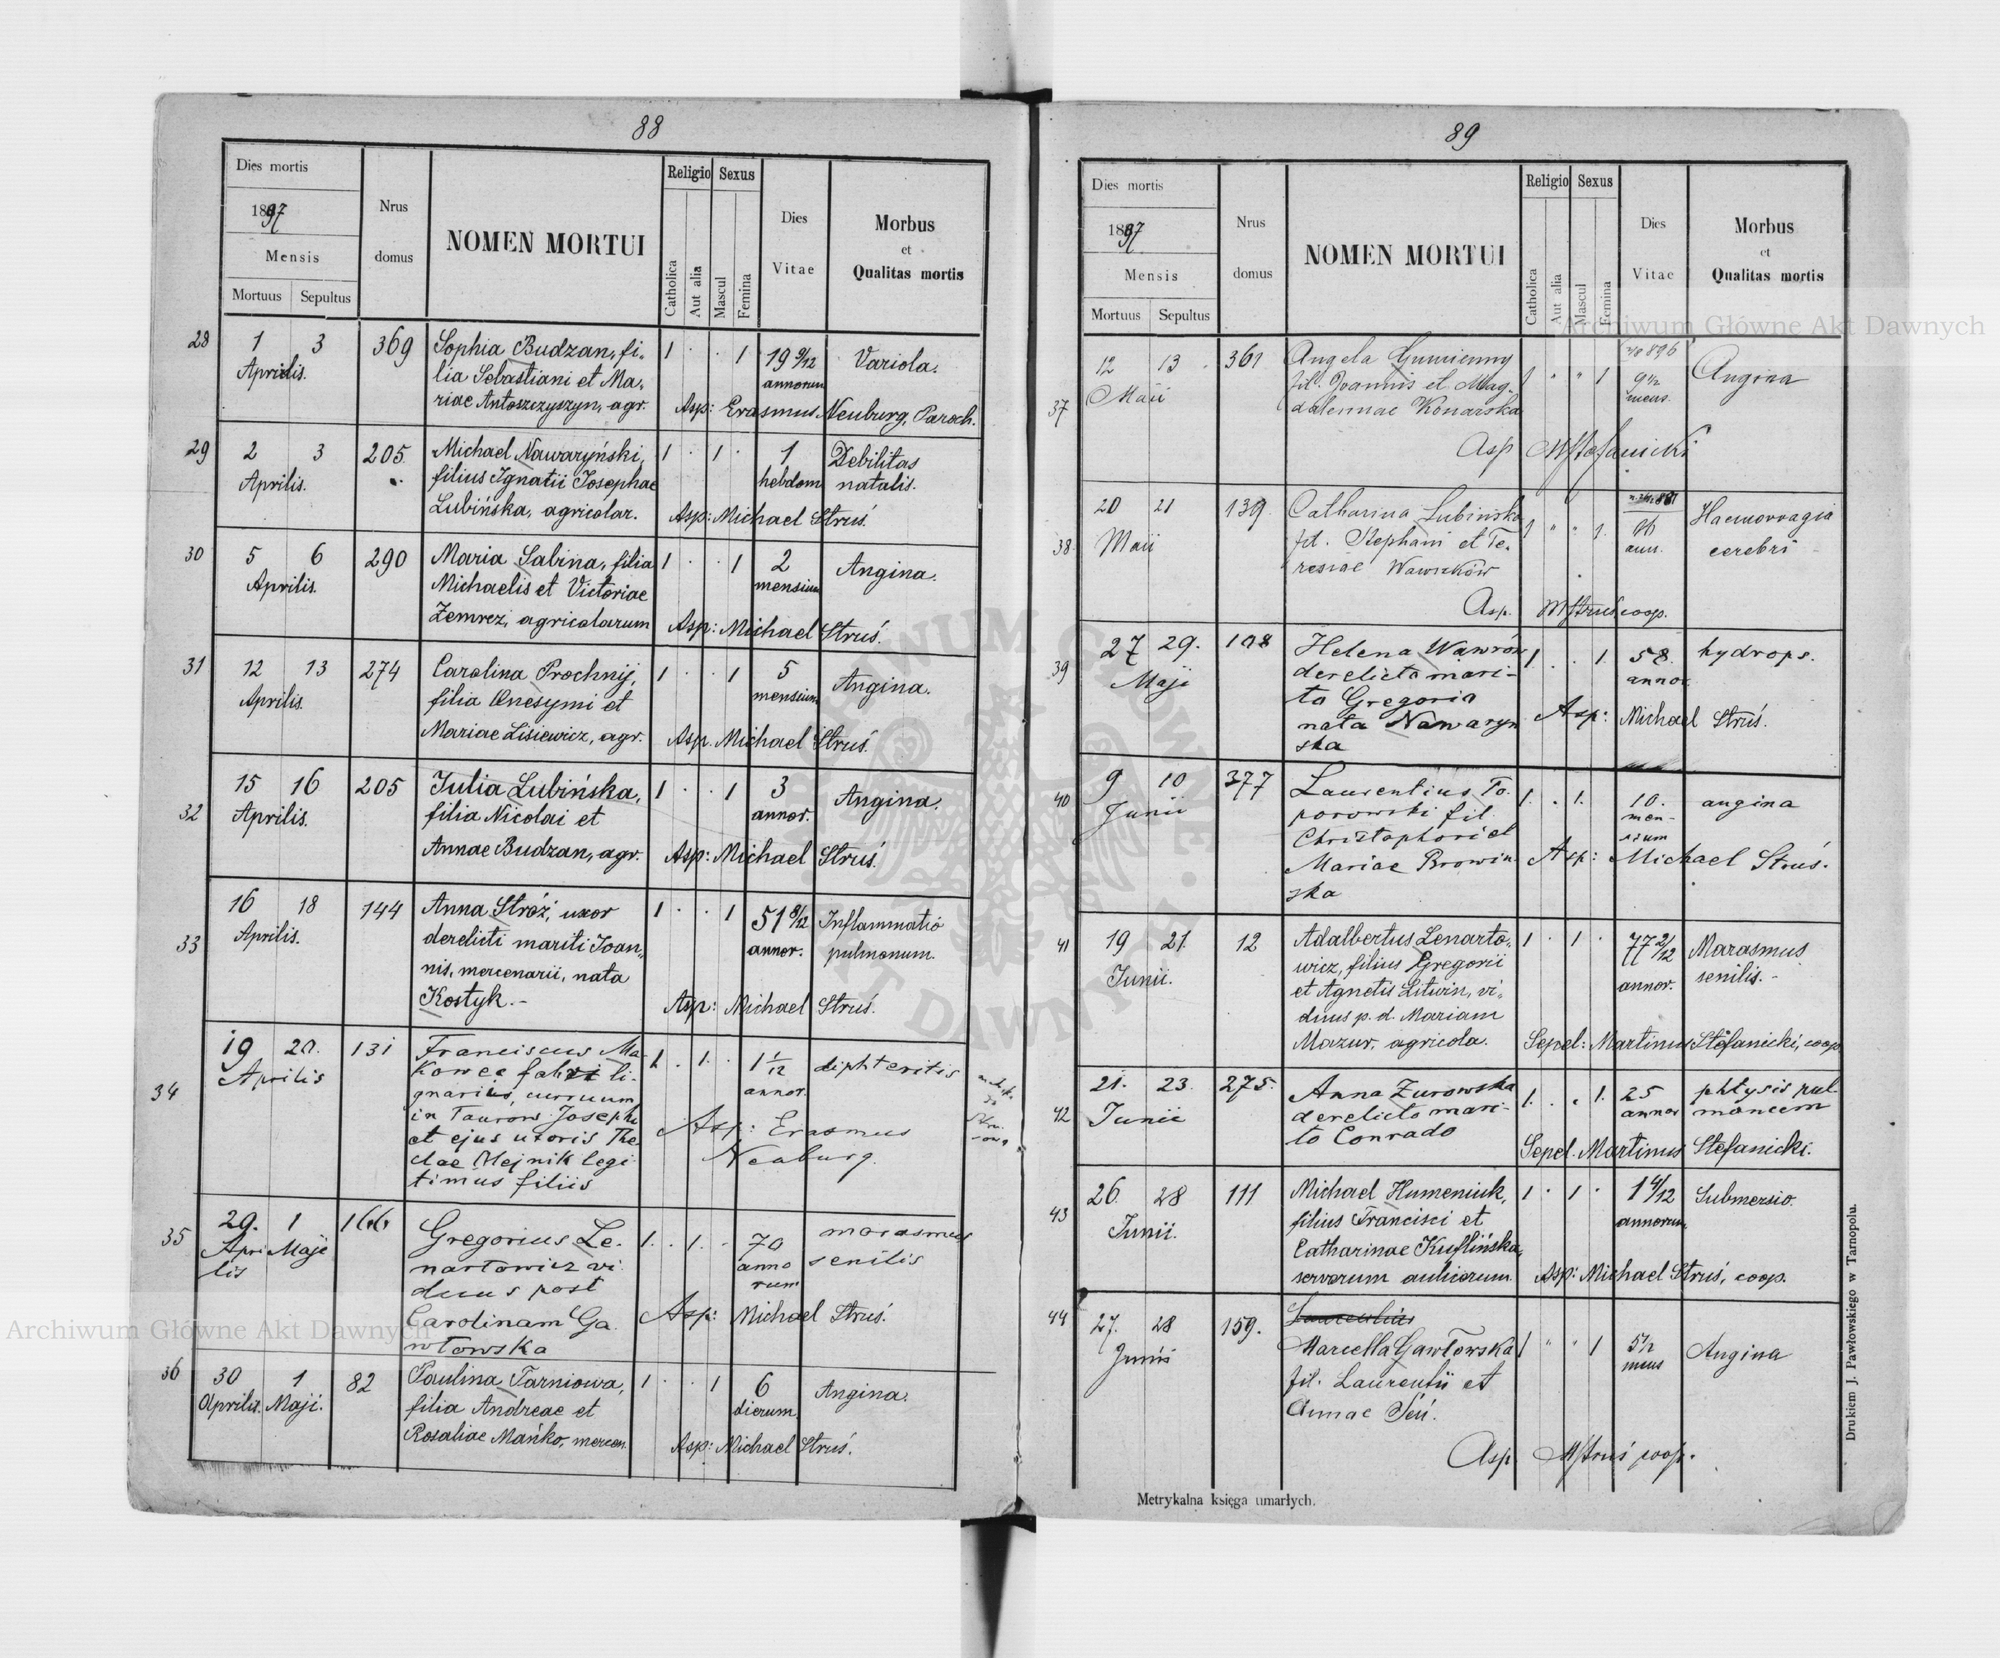 88
Dies mortis
1897
Mensis
Mortuus Sepultus
Nrus
domus
NOMEN MORTUI
Religio Sexus
Catholica Aut alia Mascul Femina
Dies
Vitae
Morbus
et
Qualitas mortis
28 1 3 369 Sophia Budzan, fi- 1 . . 1 19 9/12 Variola.
Aprilis. lia Sebastiani et Ma- annorum
riae Antoszczyszyn, agr. Asp: Erasmus Neuburg, Paroch.
29 2 3 205 Michael Nawaryński, 1 . 1 . 1 Debilitas
Aprilis. filius Ignatii Josephae hebdom natalis.
Lubińska, agricolar. Asp: Michael Struś.
30 5 6 290 Maria Sabina, filia 1 . . 1 2 Angina.
Aprilis. Michaelis et Victoriae mensium
Zemrez, agricolarum Asp: Michael Struś.
31 12 13 274 Carolina Prochnij, 1 . . 1 5 Angina.
Aprilis. filia Onesymi et mensium
Mariae Lisiewicz, agr. Asp. Michael Struś.
32 15 16 205 Julia Lubińska, 1 . . 1 3 Angina.
Aprilis. filia Nicolai et annor.
Annae Budzan, agr. Asp: Michael Struś.
33 16 18 144 Anna Stróż, uxor 1 . . 1 51 8/12 Inflammatio
Aprilis. derelicti mariti Joan- annor. pulmonum.
nis, mercenarii, nata
Kostyk.- Asp: Michael Struś.
34 19 20. 131 Franciscus Ma- 1. . 1. . 1 1/12 diphteritis
Aprilis kowce fabri li- annor.
gnarius, curruum
in Taurow Josephi Asp: Erasmus
et ejus uxoris The- Neuburg.
clae Olejnik legi-
timus filiis
35 29. 1 166 Gregorius Le- 1. . 1. . 70 marasmus
Apri- Maji nartowicz vi- anno senilis
lis duus post rum
Carolinam Ga- Asp: Michael Struś.
włowska
36 30 1 82 Paulina Tarniowa, 1 . . 1 6 Angina.
Aprilis. Maji. filia Andreae et dierum
Rosaliae Mańko, mercen. Asp: Michael Struś.
89
Dies mortis
1897
Mensis
Mortuus Sepultus
Nrus
domus
NOMEN MORTUI
Religio Sexus
Catholica Aut alia Mascul Femina
Dies
Vitae
Morbus
et
Qualitas mortis
37 12 13 361 Angela Gumienny 1 " " 1 9 1/2 Angina
Maii fil. Joannis et Mag- mens.
dalennae Konarska
Asp MStefanicki
38 20 21 139 Catharina Lubinska 1 " " 1. Haemorragia
Maii fil. Stephani et Te- ann. cerebri
resiae Wawrków
Asp. MStruś coop.
39 27 29. 108 Helena Wawrów 1 . . 1. 58. hydrops.
Maji derelicto mari- annor.
to Gregorio
nata Nawaryn Asp: Michael Struś.
ska
40 9 10 377 Laurentius To- 1. . 1. 10. angina
Junii porowski fil. men-
Christophori et sium
Mariae Browin- Asp: Michael Struś.
ska
41 19 21. 12 Adalbertus Lenarto- 1 . 1 . 77 2/12 Marasmus
Junii. wicz, filius Gregorii annor. senilis.-
et Agnetis Litwin, vi-
duus p. d. Mariam
Mazur, agricola. Sepel: Martinus Stefanicki, coop
42 21. 23. 275. Anna Zurowska 1. . . 1. 25 phtysis pul-
Junii derelicto mari- annor monum
to Conrado
Sepel. Martinus Stefanicki.
43 26. 28 111 Michael Humeniuk, 1 . 1 . 1 4/12 Submersio.
Junii. filius Francisci et annorum.
Catharinae Kuflińska,
servorum aulicorum. Asp: Michael Struś, coop.
44 27. 28 159. Laurentius
Junii Marcella Gawłowska 1 " " 1 5 1/2 Angina
fil. Laurentii et mens
Annae Seń.
Asp MStruś coop.
Metrykalna księga umarłych.
Drukiem J. Pawłowskiego w Tarnopolu.
Archiwum Główne Akt Dawnych
Archiwum Główne Akt Dawnych
ARCHIWUM GŁÓWNE AKT DAWNYCH